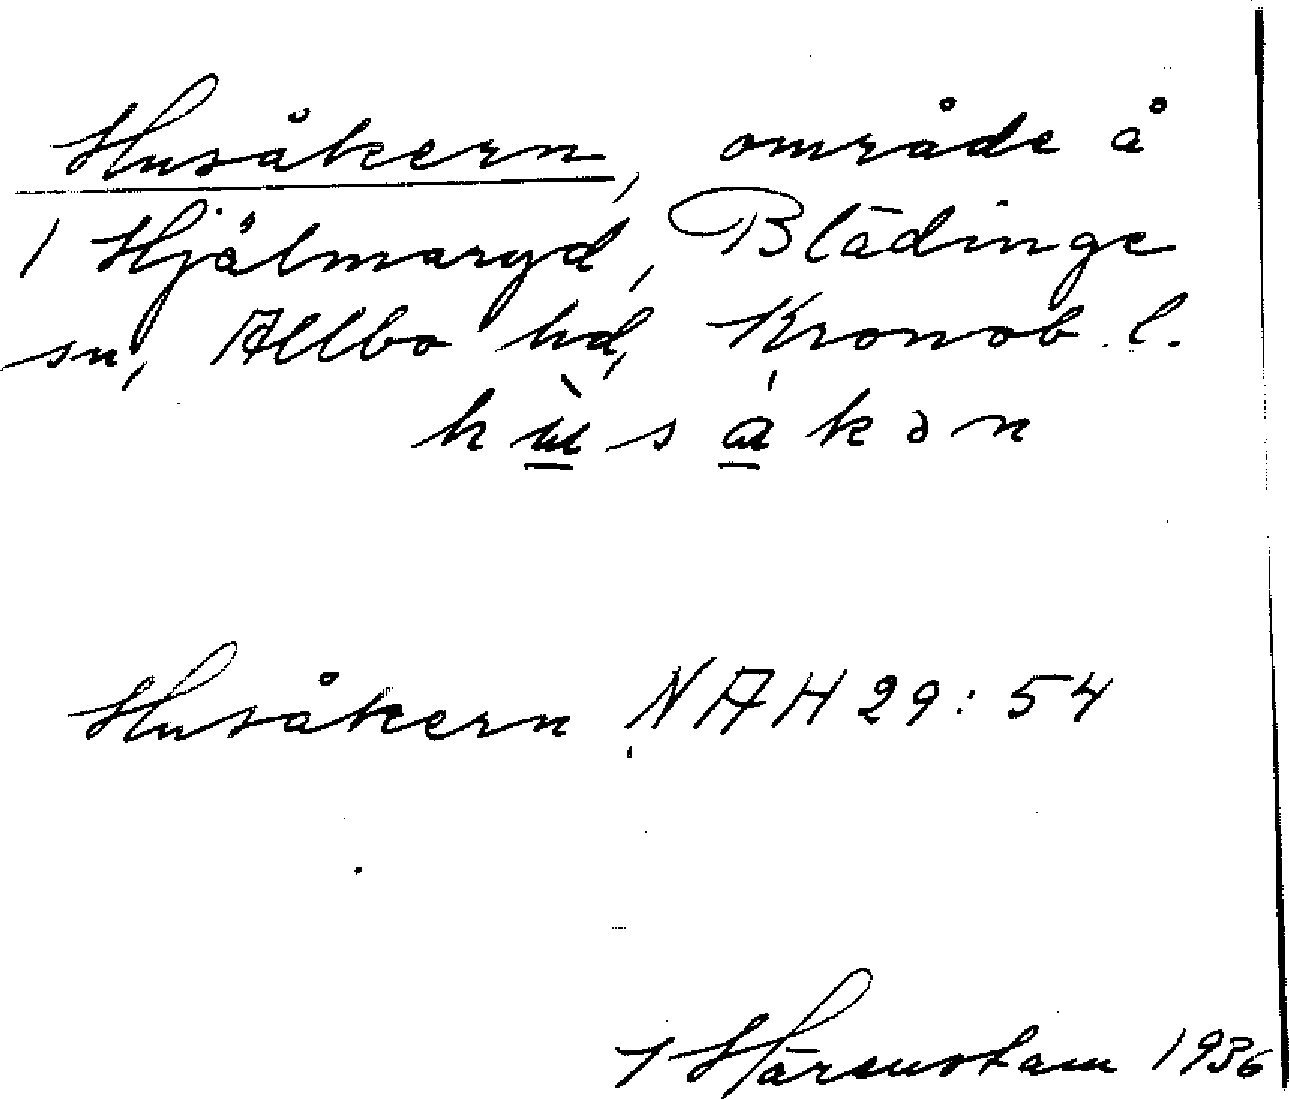 Husåkern, område å
1 Hjälmaryd, Blädinge
sn, Allbo hd, Kronob. l.
hù̲sǻ̲kən
Husåkern NAH 29:54
1936